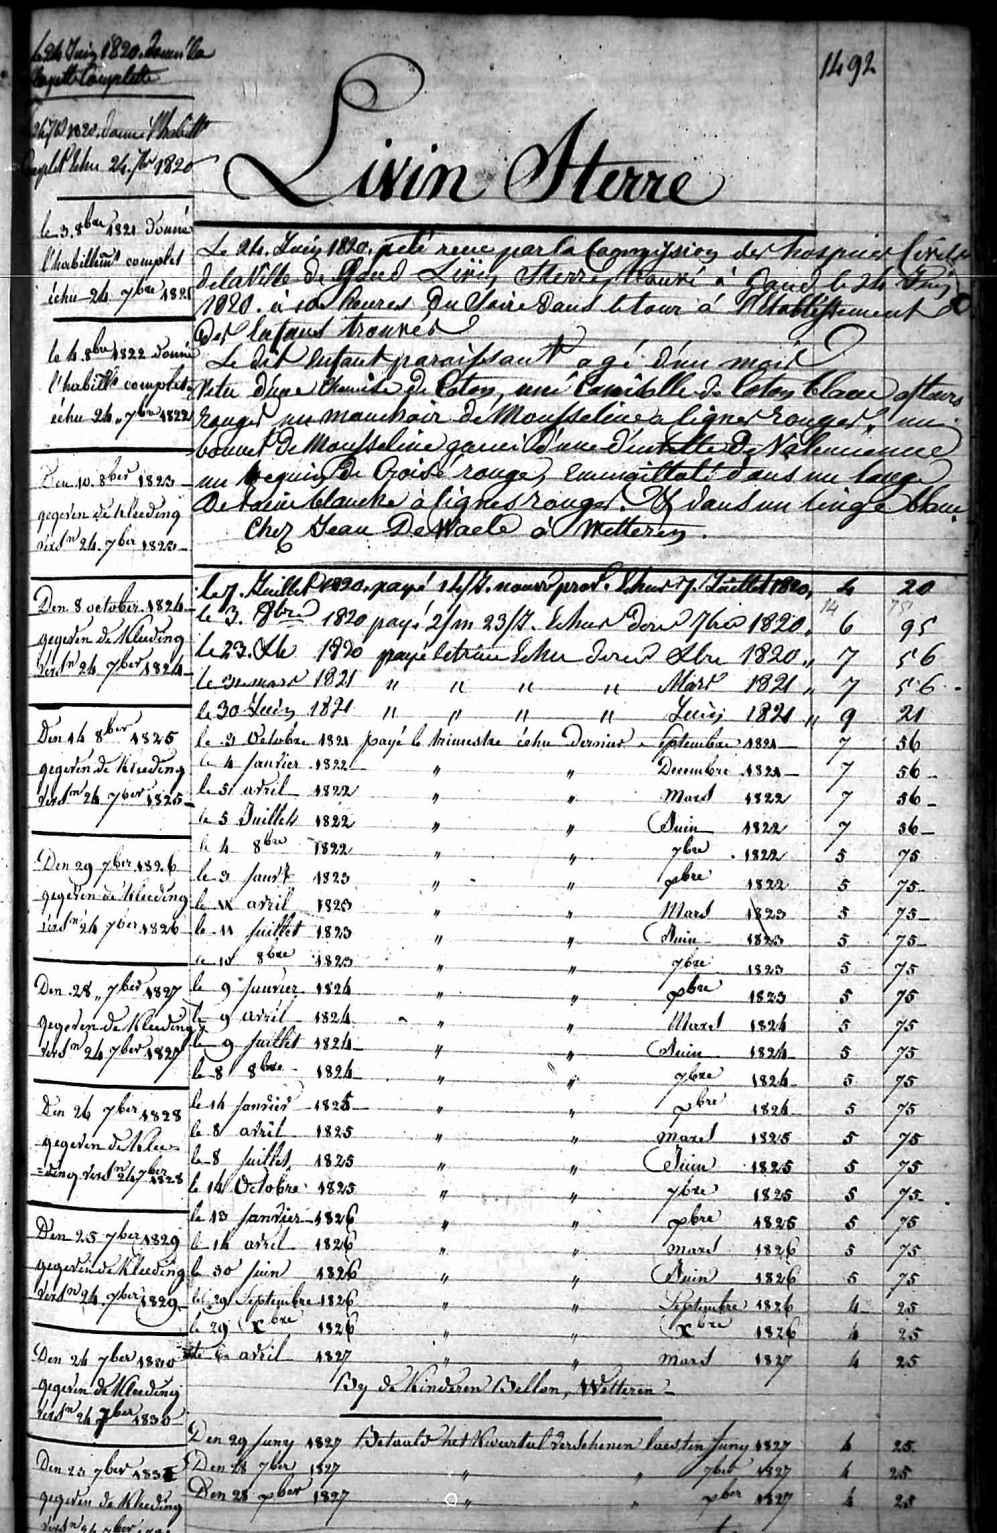 le 24 Juin 1820. Donné la
Layette Complette
24 7bre 1820. donné l'habillt
Complet Echu 24. 7bre 1820
1492
Livin Sterre
le 3. 8bre 1821 Donné
l'habillemt complet
échu 24. 7bre 1821
le 4. 8bre 1822 Donné
l'habillt complet
échu 24. 7bre 1822
Den 10. 8ber 1823
gegeven de Kleeding
versn 24. 7ber 1823
Den 8 october 1824
gegeven de Kleeding
versn 24 7ber 1824
Den 14 8ber 1825
gegeven de Kleeding
versn 24 7ber 1825
Den 29 7ber 1826
gegeven de Kleeding
versn 24 7ber 1826
Den 28 7ber 1827
gegeven de Kleeding
versn 24 7ber 1827
Den 26 7ber 1828
gegeven de Klee=
=ding versn 24 7ber 1828
Den 25 7ber 1829
gegeven de Kleeding
versn 24 7ber 1829
Den 24 7ber 1830
gegeven de Kleeding
versn 24 7ber 1830
Den 23 7ber 1831
gegeven de Kleeding
Le 24. Juin 1820. a été reçu par la Commission des hospices Civils
de la Ville de Gand Livin Sterre, trouvé à Gand le 24 Juin
1820. à 10 heures du Soire dans le tour à l'Etablissement
des Enfans trouvés
Le dit Enfant paraissant agé d'un mois
Vetu d'une Chemise de Coton, une Camisolle de Coton blanc a fleurs
rouges un mouchoir de Mousseline a lignes rouges, un
bonnet de Mousseline garni d'une dentelle de Valencienne
un beguin de Croisé rouge, emmaillotté dans un lange
De laine blanche à lignes rouges. Et dans un linge blanc.
Chez Jean De Waele à Wetteren.
le 7. Juillet 1820. payé 14/J. nourr prov. Echus 7. Juillet 1820. 4 20
14 75
le 3. 8bre 1820 payé 2/m 23/J. Echus Dere 7bre 1820. 6 95
le 23. Xbre 1820 payé letrim Echu dere Xbre 1820 " 7 56
le 31 mars 1821 " " " " Mars 1821 " 7 56
le 30 Juin 1821 " " " " Juin 1821 " 9 21
le 3 Octobre 1821 payé le trimestre échu dernier Septembre 1821 7 56
le 4 Janvier 1822 " " Decembre 1821 7 56
le 5 avril 1822 " " Mars 1822 7 56
le 5 Juillet 1822 " " Juin 1822 7 56
le 4 8bre 1822 " " 7bre 1822 5 75
le 3 Janvr 1823 " " Xbre 1822 5 75
le 11 avril 1823 " " Mars 1823 5 75
le 11 Juillet 1823 " " Juin 1823 5 75
le 10 8bre 1823 " " 7bre 1823 5 75
le 9 Janvier 1824 " " Xbre 1823 5 75
le 9 avril 1824 " " Mars 1824 5 75
le 9 Juillet 1824 " " Juin 1824 5 75
le 8 8bre 1824 " " 7bre 1824 5 75
le 14 Janvier 1825 " " Xbre 1824 5 75
le 8 avril 1825 " " mars 1825 5 75
le 8 Juillet 1825 " " Juin 1825 5 75
le 14 Octobre 1825 " " 7bre 1825 5 75
le 13 Janvier 1826 " " Xbre 1825 5 75
le 14 avril 1826 " " mars 1826 5 75
le 30 Juin 1826 " " Juin 1826 5 75
le 29 Septembre 1826 " " Septembre 1826 4 25
le 29 Xbre 1826 " " Xbre 1826 4 25
le 6 avril 1827 " " mars 1827 4 25
By de Kinderen Bellon, Wetteren
Den 29 Juny 1827 Betaald het Kwartael verschenen laesten Juny 1827 4 25
Den 28 7ber 1827 " " 7ber 1827 4 25
Den 28 Xber 1827 " " Xber 1827 4 25